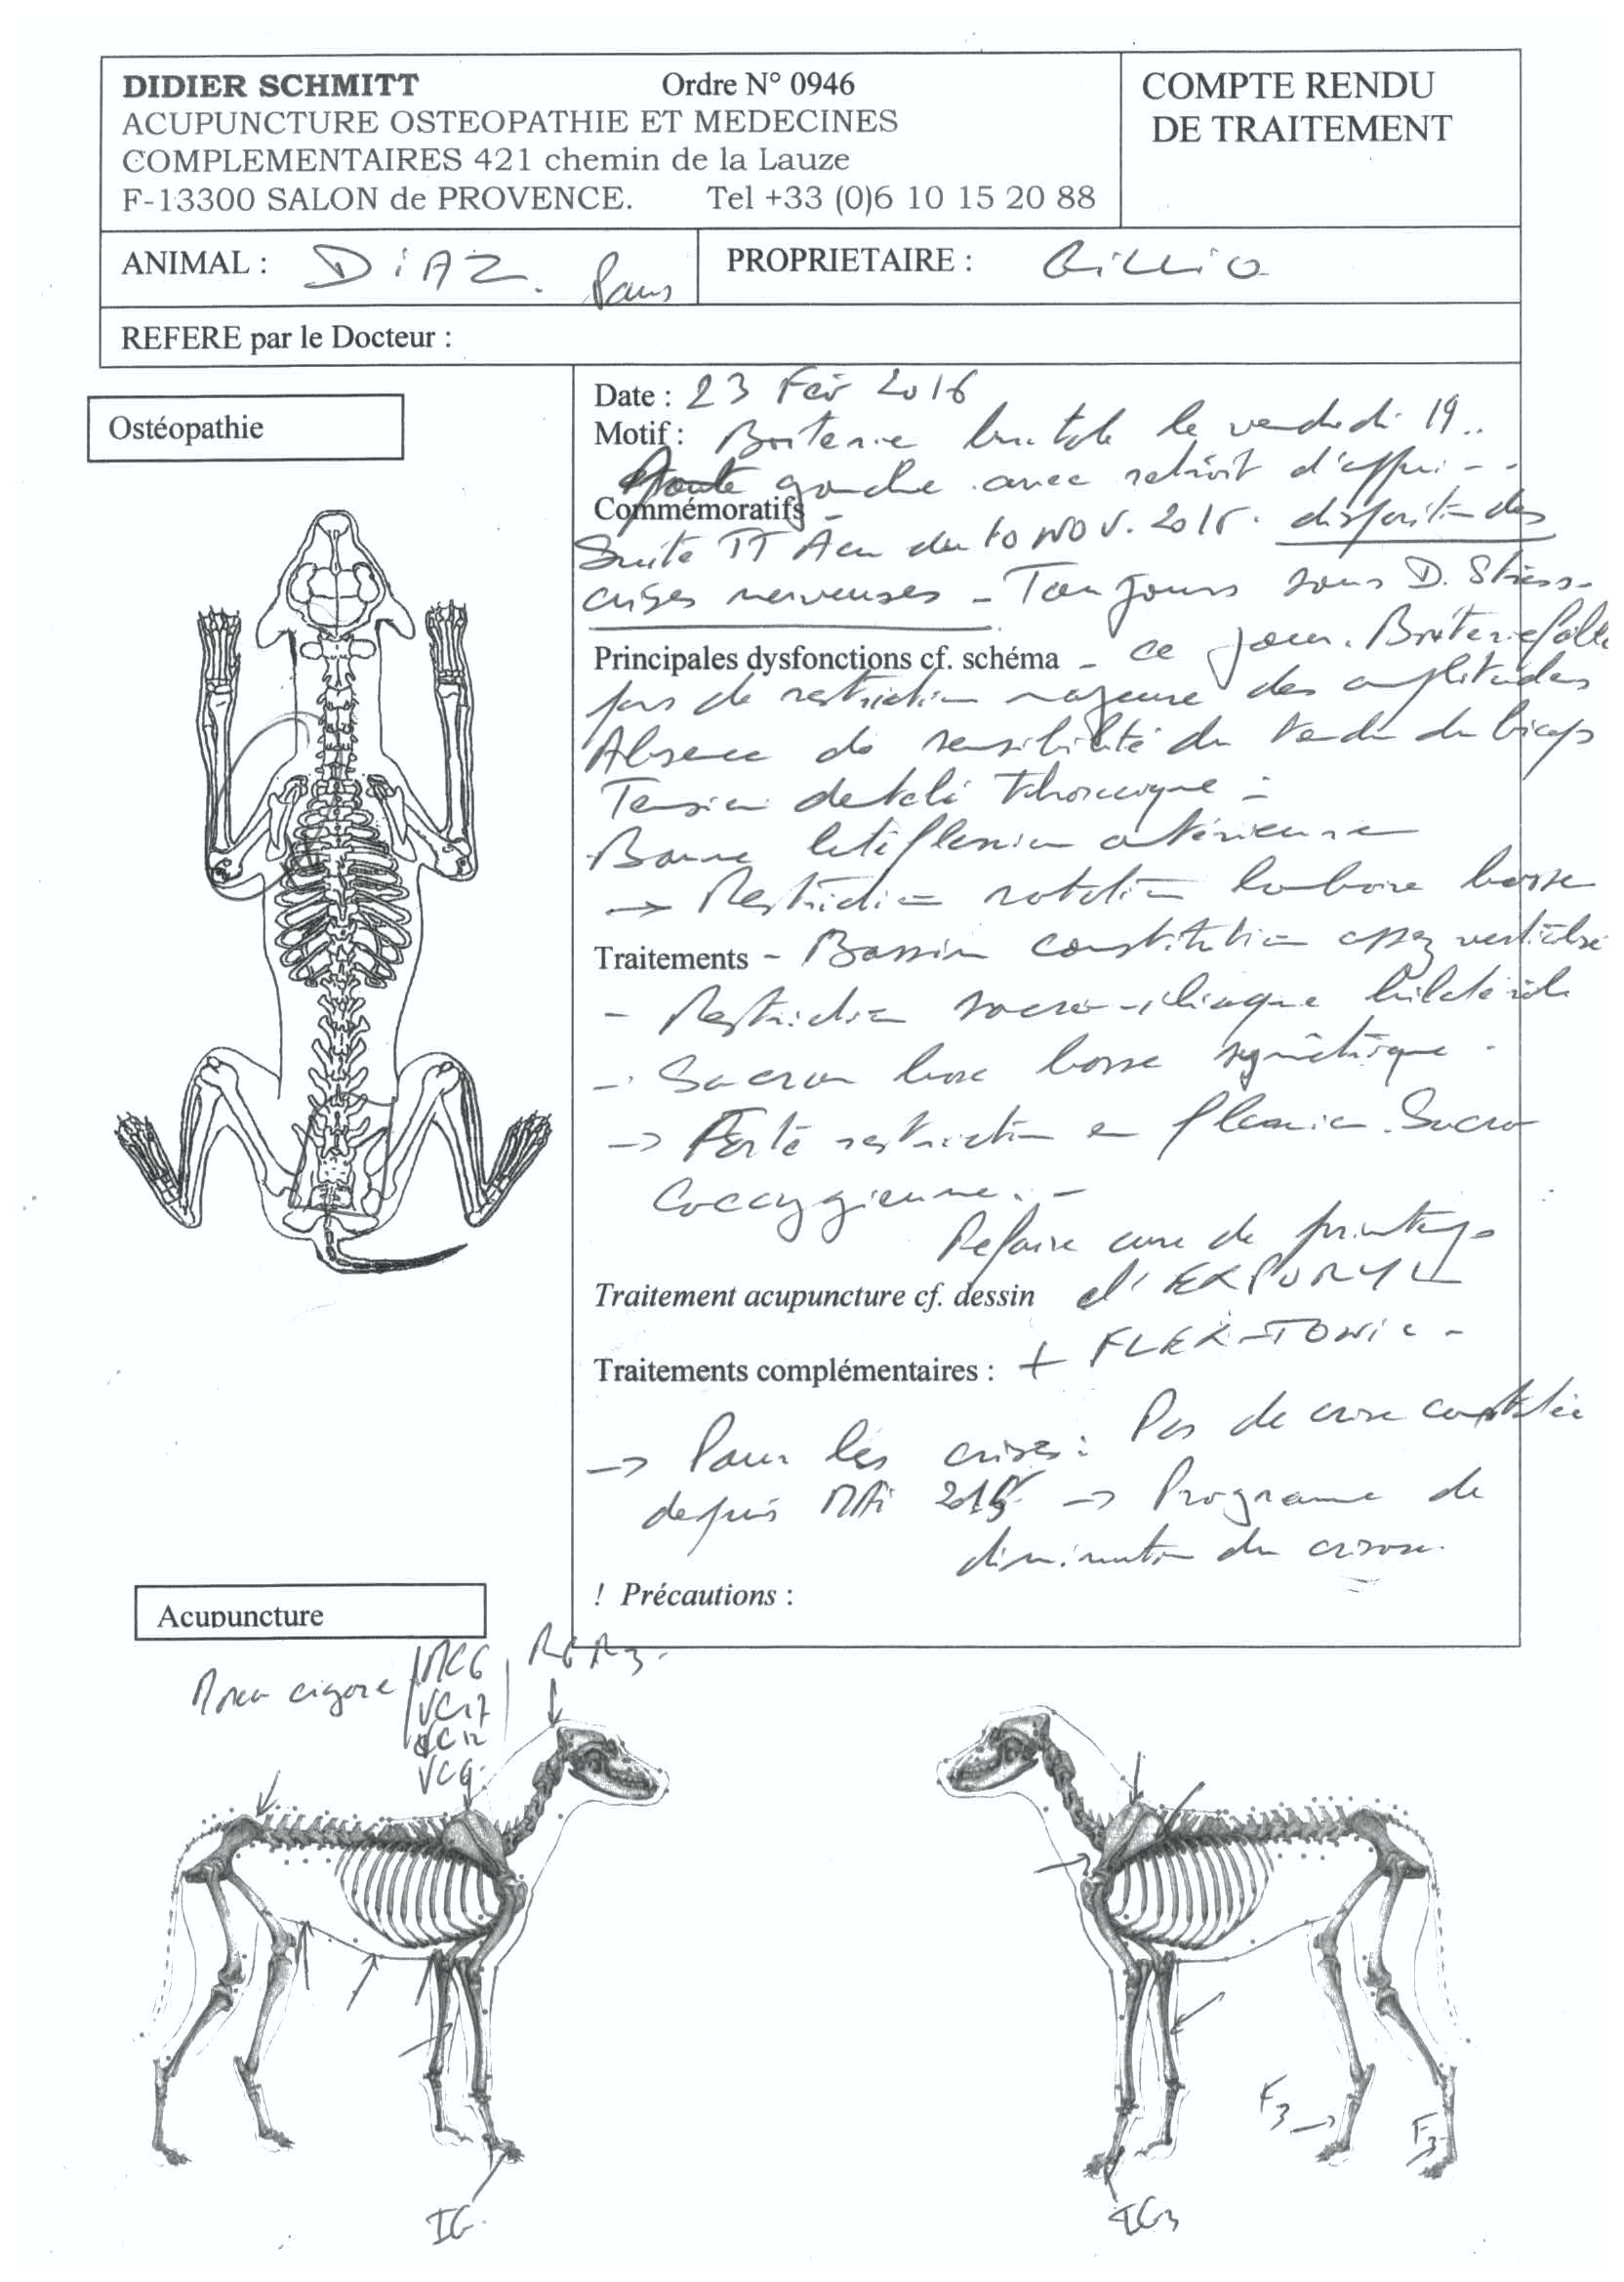 DIDIER SCHMITT Ordre N° 0946
ACUPUNCTURE OSTEOPATHIE ET MEDECINES
COMPLEMENTAIRES 421 chemin de la Lauze
F-13300 SALON de PROVENCE. Tel +33 (0)6 10 15 20 88
COMPTE RENDU
DE TRAITEMENT
ANIMAL : DiAZ.
PROPRIETAIRE :
REFERE par le Docteur :
Ostéopathie
Date : 23 Fév 2016
Motif : Boiterie brutale le vendredi 19..
gauche avec retrait d'appui - -
Commémoratifs -
Suite TT Acu du 10 NOV. 2015. disparition des
crises nerveuses - Toujours sous D. Stress -
Principales dysfonctions cf. schéma - ce jour. Boiterie
pas de restriction majeure des amplitudes
Absence de sensibilité du tendon du biceps
Tension thoracique -
Bonne latéflexion antérieure
-> Restriction rotation lombaire basse
Traitements - Bassin constitution assez verticalisé
- Restriction sacro-iliaque bilatérale
- Sacrum base basse symétrique -
-> Forte restriction en flexion Sacro
Coccygienne. -
Refaire cure de printemps
Traitement acupuncture cf. dessin d'EXPURYL
Traitements complémentaires : + FLEX-TONIC -
-> Pour les crises : Pas de crise constatée
depuis MAi 2015 -> Programme de
diminution du
! Précautions :
Acupuncture
MC6
VC17
VC12
R6 R3.
IG.
IG3
F3 ->
F3